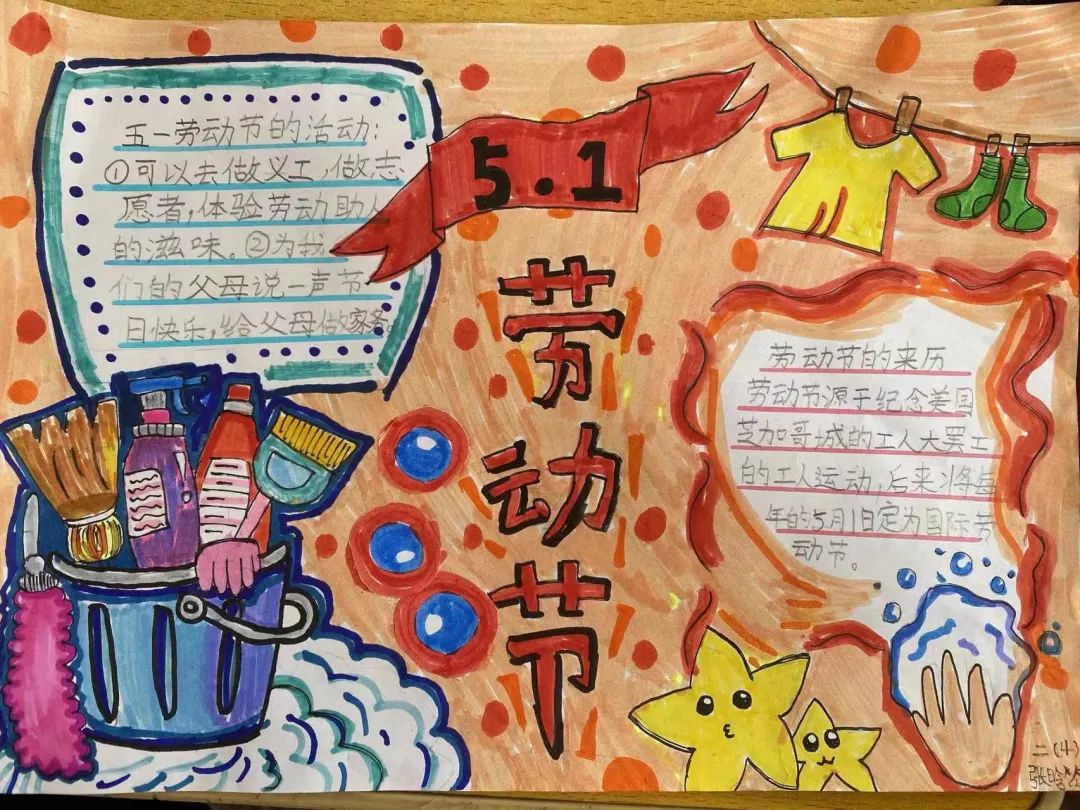 五一劳动节的活动:
①可以去做义工,做志
愿者,体验劳动助人
的滋味。②为我
们的父母说一声节
日快乐,给父母做家务。
5.1
劳
动
节
劳动节的来历
劳动节源于纪念美国
芝加哥城的工人大罢工
的工人运动,后来将每
年的5月1日定为国际劳
动节。
二(4)
张晗